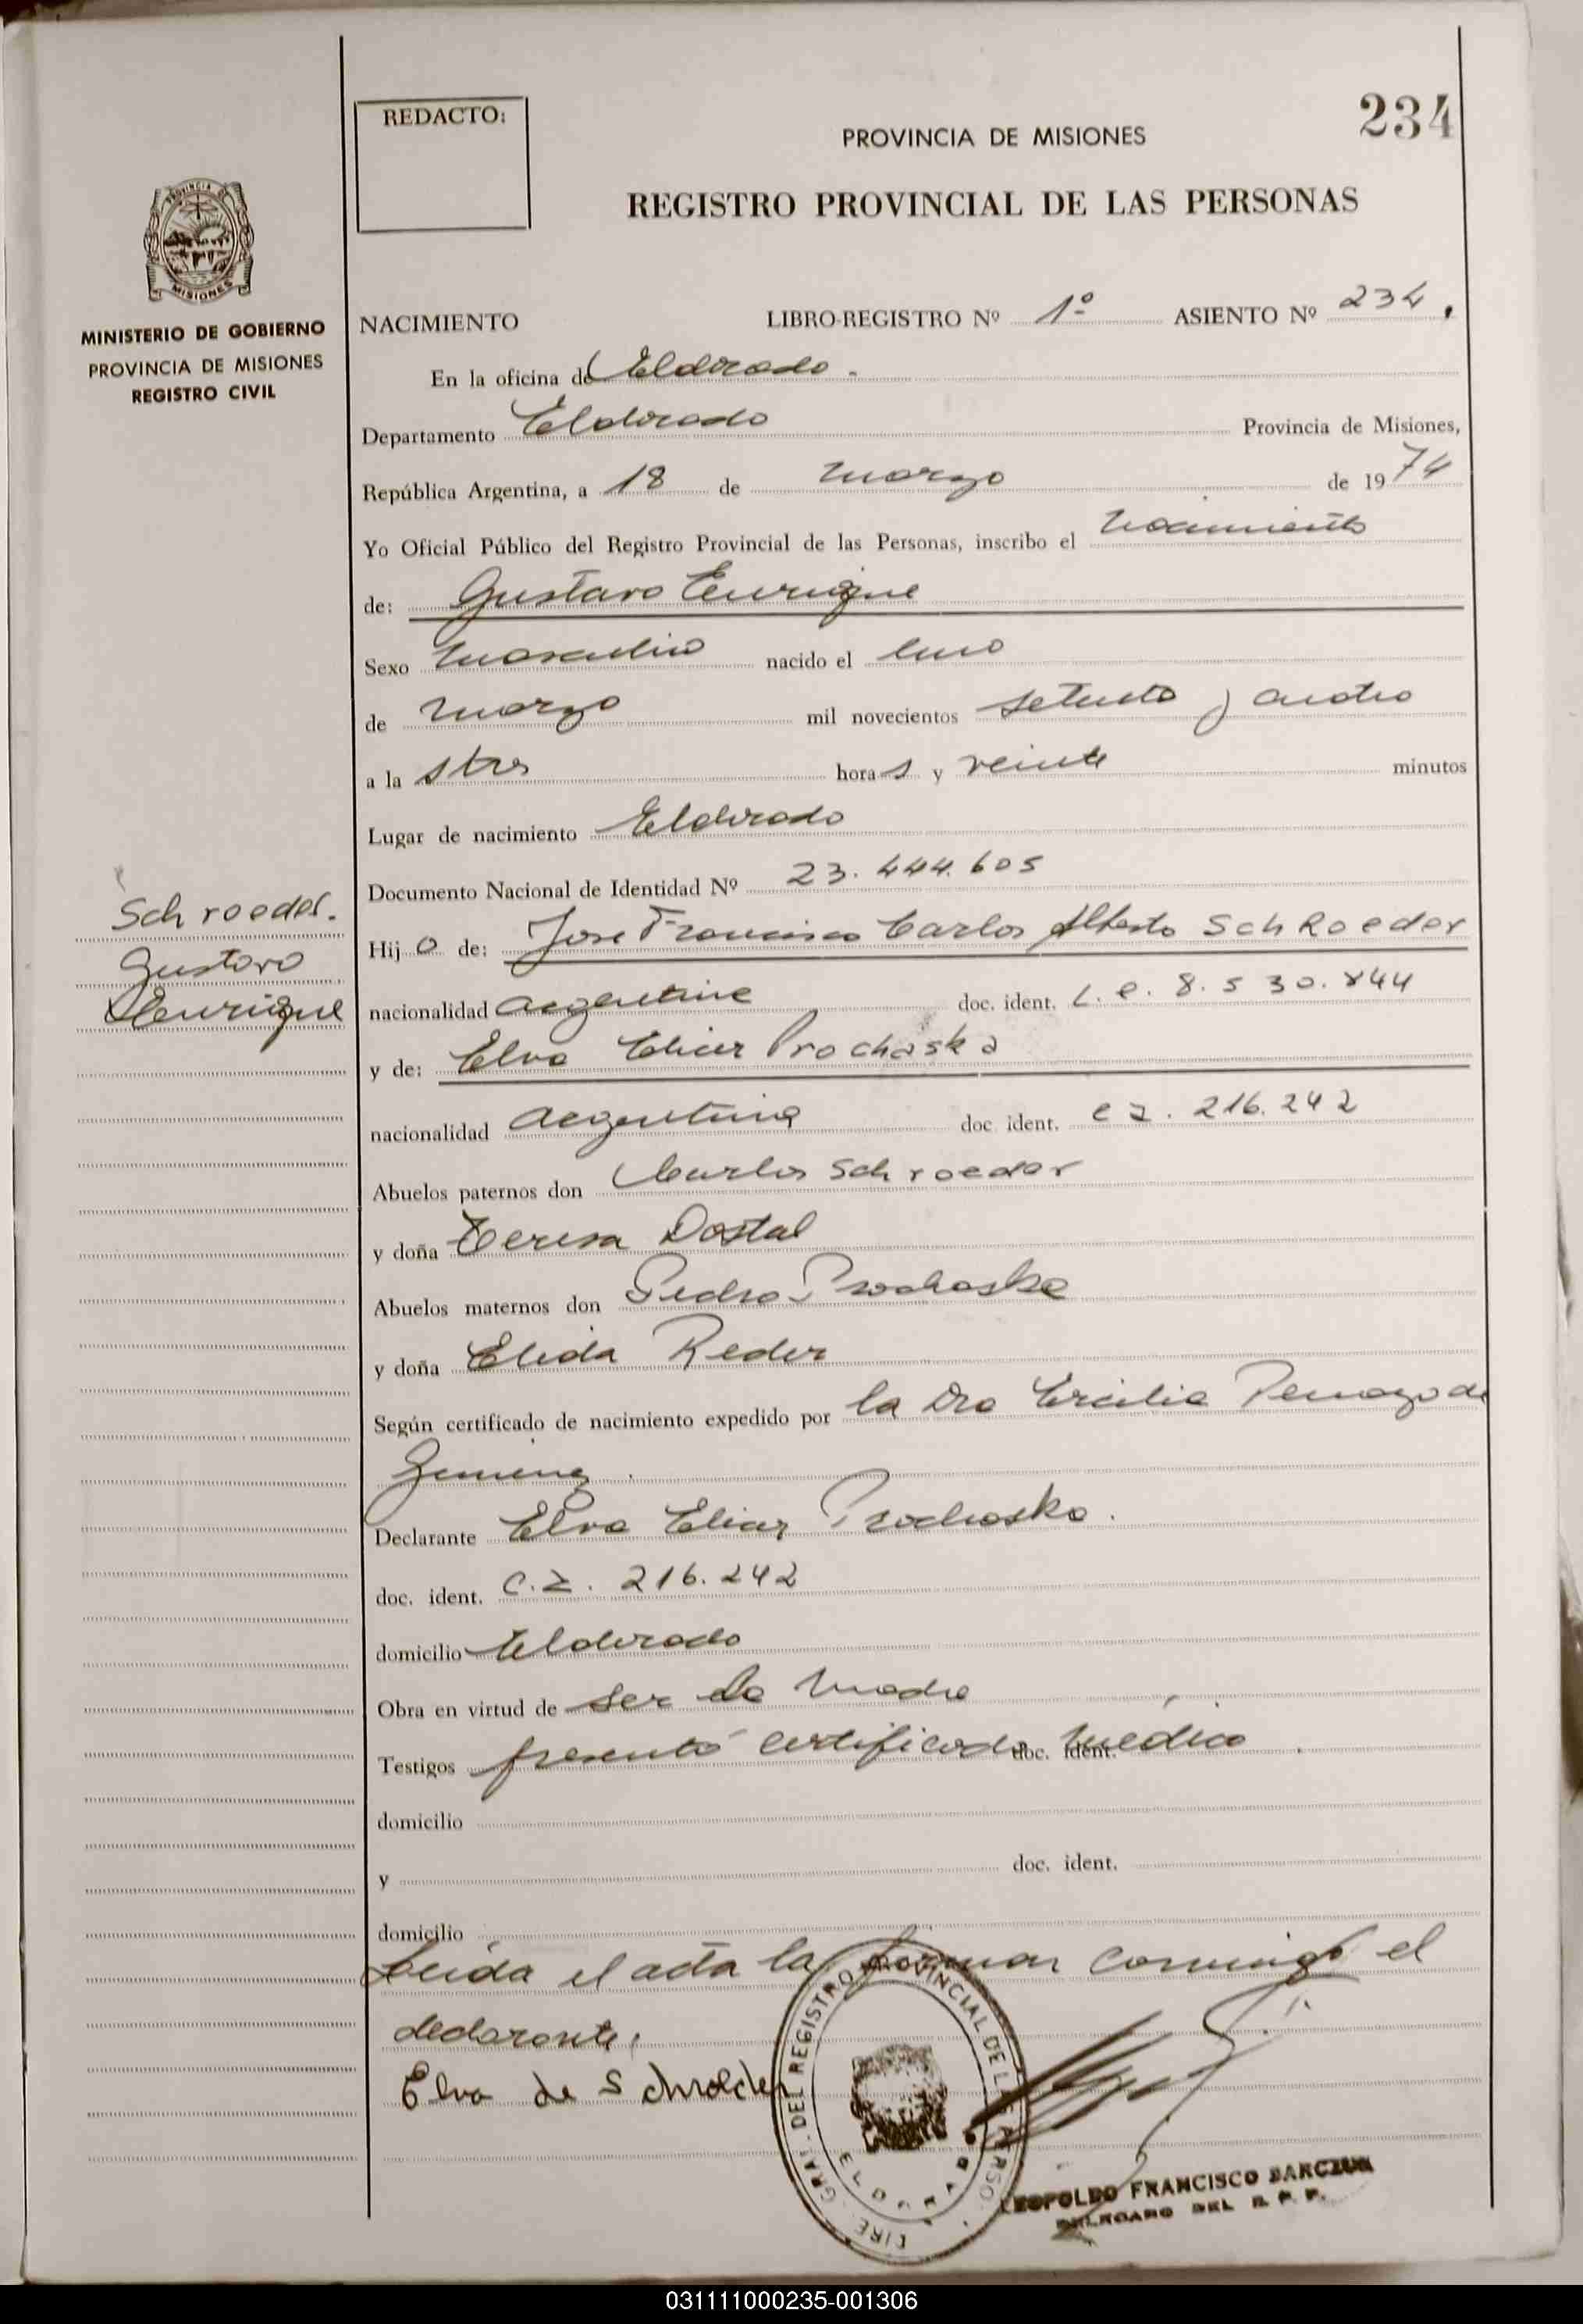 234
REDACTO:
PROVINCIA DE MISIONES
REGISTRO PROVINCIAL DE LAS PERSONAS
PROVINCIA DE
MISIONES
MINISTERIO DE GOBIERNO
PROVINCIA DE MISIONES
REGISTRO CIVIL
NACIMIENTO LIBRO-REGISTRO Nº 1º ASIENTO Nº 234.
En la oficina de Eldorado.
Departamento Eldorado Provincia de Misiones,
República Argentina, a 18 de marzo de 1974
Yo Oficial Público del Registro Provincial de las Personas, inscribo el nacimiento
de: Gustavo Enrique
Sexo masculino nacido el uno
de marzo mil novecientos setenta y cuatro
a la s tres hora s y veinte minutos
Lugar de nacimiento Eldorado
Documento Nacional de Identidad Nº 23.444.605
Schroeder.
Gustavo
Enrique
Hij o de: Jose Francisco Carlos Alberto Schroeder
nacionalidad argentino doc. ident. L.e. 8.530.844
y de: Elva Prochaska
nacionalidad argentina doc. ident. 216.242
Abuelos paternos don Carlos Schroeder
y doña Teresa Dostal
Abuelos maternos don Pedro Prochaska
y doña Elida Reder
Según certificado de nacimiento expedido por la Dra Ercilia de
Declarante Elva Prochaska.
doc. ident. 216.242
domicilio Eldorado
Obra en virtud de ser la madre
Testigos presentó certificado doc. ident. médico.
domicilio
y doc. ident.
domicilio
Leida el acta la firman conmigo el
declarante.
Elva de Schroeder
DIRE. GRAL. DEL REGISTRO PROVINCIAL DE LAS PERSO.
ELDORADO
LEOPOLDO FRANCISCO
DELEGADO DEL R. P. P.
031111000235-001306